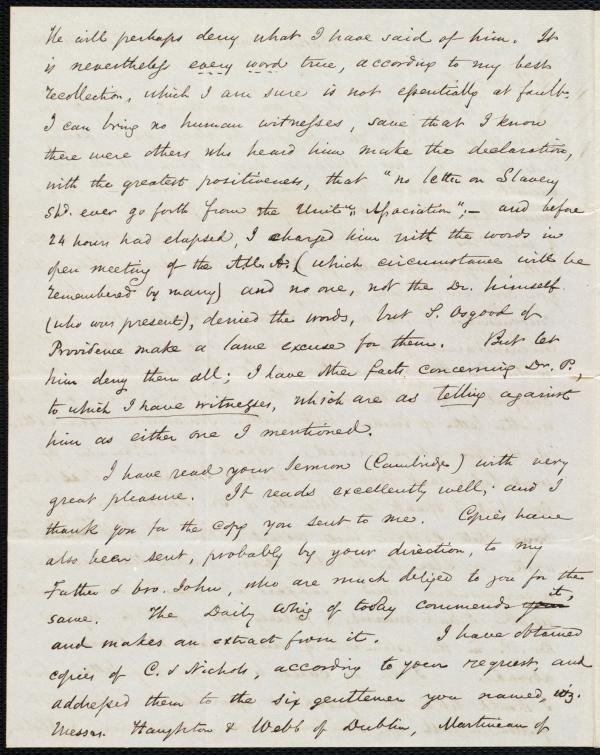 He will perhaps deny what I have said of him. It
is nevertheless every word true, according to my best
recollection, which I am sure is not essentially at fault.
I can bring no human witnesses, save that I know
there were others who heard him make the declaration,
with the greatest positiveness, that "no letter on Slavery
shd. ever go forth from the Unitn. Association";— and before
24 hours had elapsed, I charged him with the words in
open meeting of the A. U. A. (which circumstance will be
remembered by many) and no one, not the Dr. himself
(who was present), denied the words, but S. Osgood of
Providence make a lame excuse for them. But let
him deny them all; I have other facts concerning Dr. P.,
to which I have witnesses, which are as telling against
him as either one I mentioned.
I have read your Sermon (Cambridge) with very
great pleasure. It reads excellently well; and I
thank you for the copy you sent to me. Copies have
also been sent, probably by your direction, to my
Father & bro. John, who are much obliged to you for the
same. The Daily Whig of today commends your it,
and makes an extract from it. I have obtained
copies of C. & Nichols, according to your request, and
addressed them to the six gentlemen you named, viz.
Messrs. Haughton & Webb of Dublin, Martineau of